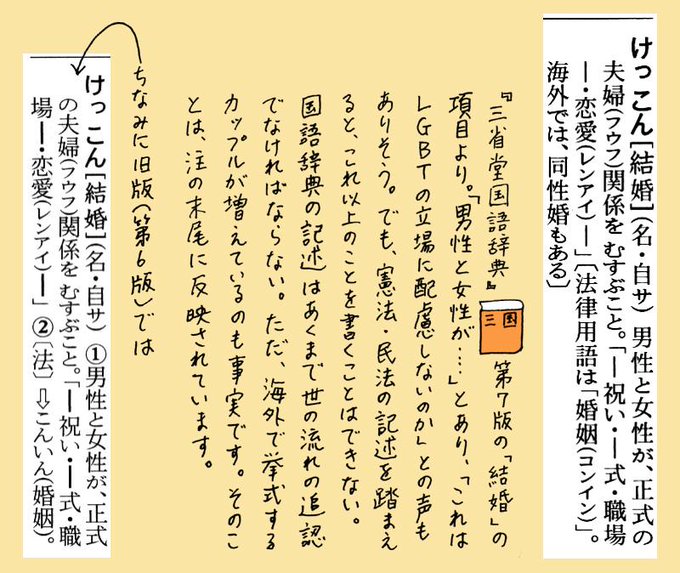 けっこん[結婚](名・自サ) 男性と女性が、正式の
夫婦(フウフ)関係を むすぶこと。「―祝い・―式・職場
―・恋愛(レンアイ)―」〔法律用語は「婚姻(コンイン)」。
海外では、同性婚もある〕
『三省堂国語辞典』
三国
第7版の「結婚」の
項目より。「男性と女性が…」とあり、「これは
LGBTの立場に配慮しないのか」との声も
ありそう。でも、憲法・民法の記述を踏まえ
ると、これ以上のことを書くことはできない。
国語辞典の記述はあくまで世の流れの追認
でなければならない。ただ、海外で挙式する
カップルが増えているのも事実です。そのこ
とは、注の末尾に反映されています。
ちなみに旧版(第6版)では
けっこん[結婚](名・自サ) ①男性と女性が、正式
の夫婦(フウフ)関係を むすぶこと。「―祝い・―式・職
場―・恋愛(レンアイ)―」 ②〔法〕⇩こんいん(婚姻)。